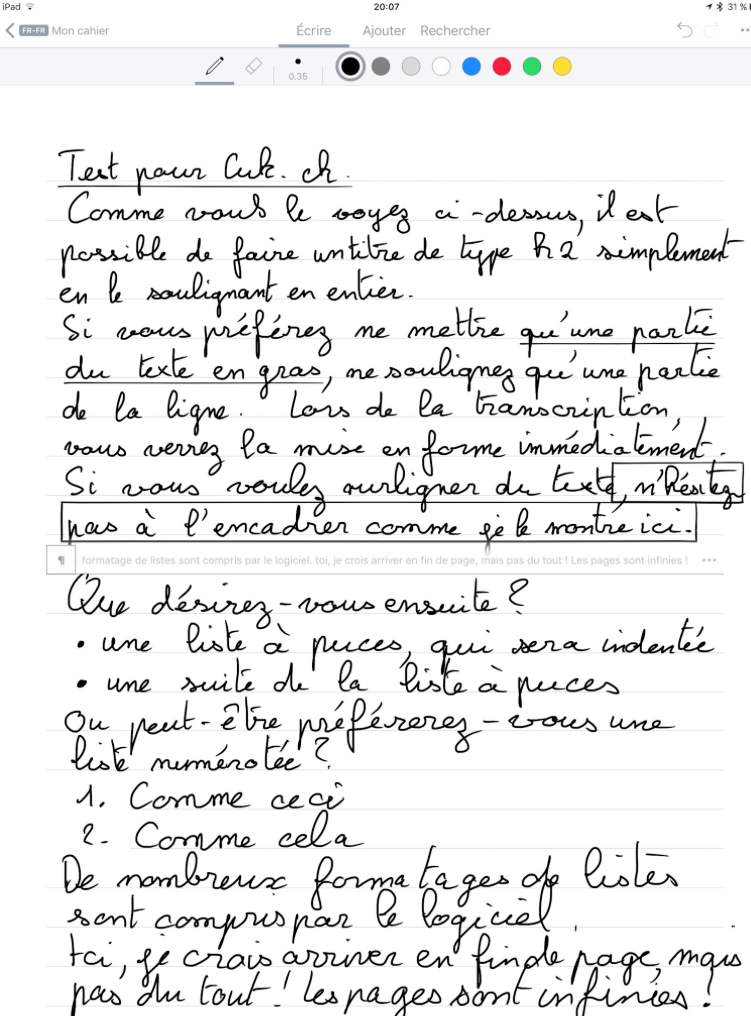 iPad 20:07 31 %
FR-FR Mon cahier Écrire Ajouter Rechercher
0.35
Test pour Cuk.ch.
Comme vous le voyez ci-dessus, il est
possible de faire un titre de type h2 simplement
en le soulignant en entier.
Si vous préférez ne mettre qu'une partie
du texte en gras, ne soulignez qu'une partie
de la ligne. Lors de la transcription,
vous verrez la mise en forme immédiatement.
Si vous voulez surligner du texte, n'hésitez
pas à l'encadrer comme je le montre ici.
¶ formatage de listes sont compris par le logiciel. toi, je crois arriver en fin de page, mais pas du tout ! Les pages sont infinies ! ...
Que désirez-vous ensuite ?
• une liste à puces, qui sera indentée
• une suite de la liste à puces
Ou peut-être préférerez-vous une
liste numérotée ?
1. Comme ceci
2. Comme cela
De nombreux formatages de listes
sont compris par le logiciel.
Ici, je crois arriver en fin de page, mais
pas du tout ! Les pages sont infinies !